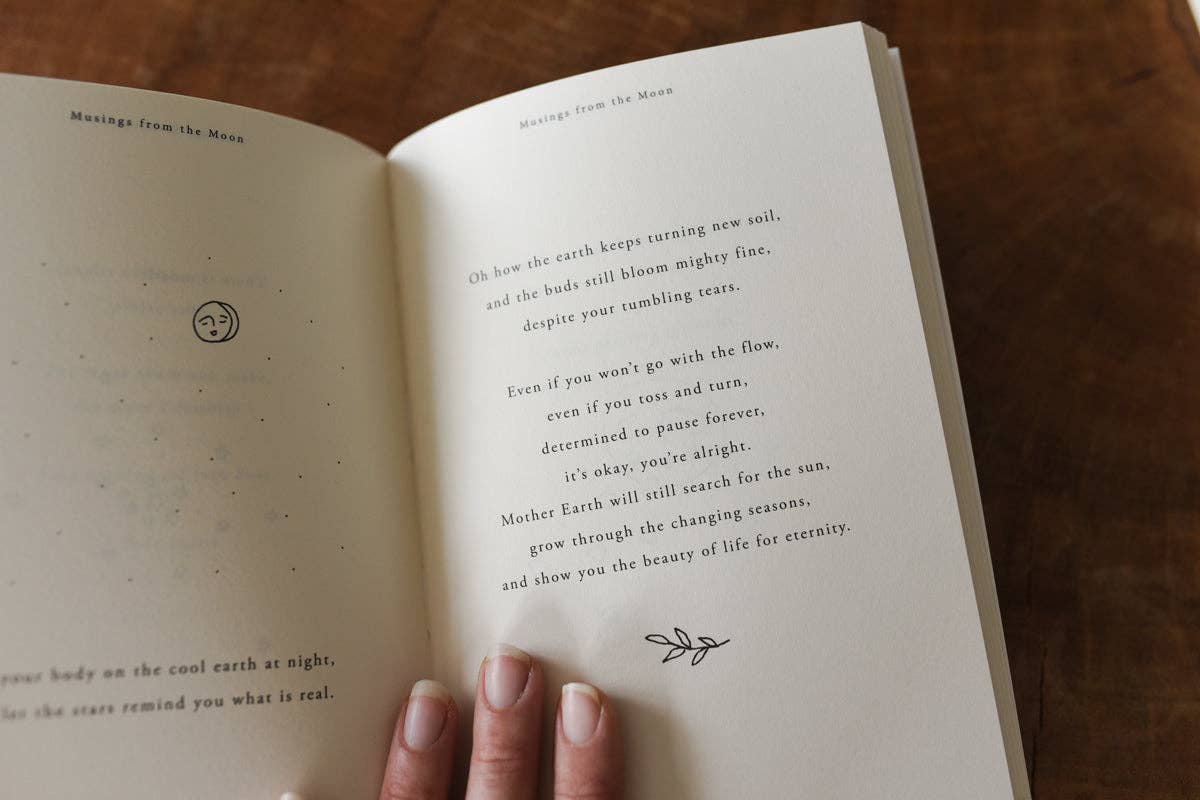 Musings from the Moon
your body on the cool earth at night,
let the stars remind you what is real.
Musings from the Moon
Oh how the earth keeps turning new soil,
and the buds still bloom mighty fine,
despite your tumbling tears.
Even if you won’t go with the flow,
even if you toss and turn,
determined to pause forever,
it’s okay, you’re alright.
Mother Earth will still search for the sun,
grow through the changing seasons,
and show you the beauty of life for eternity.